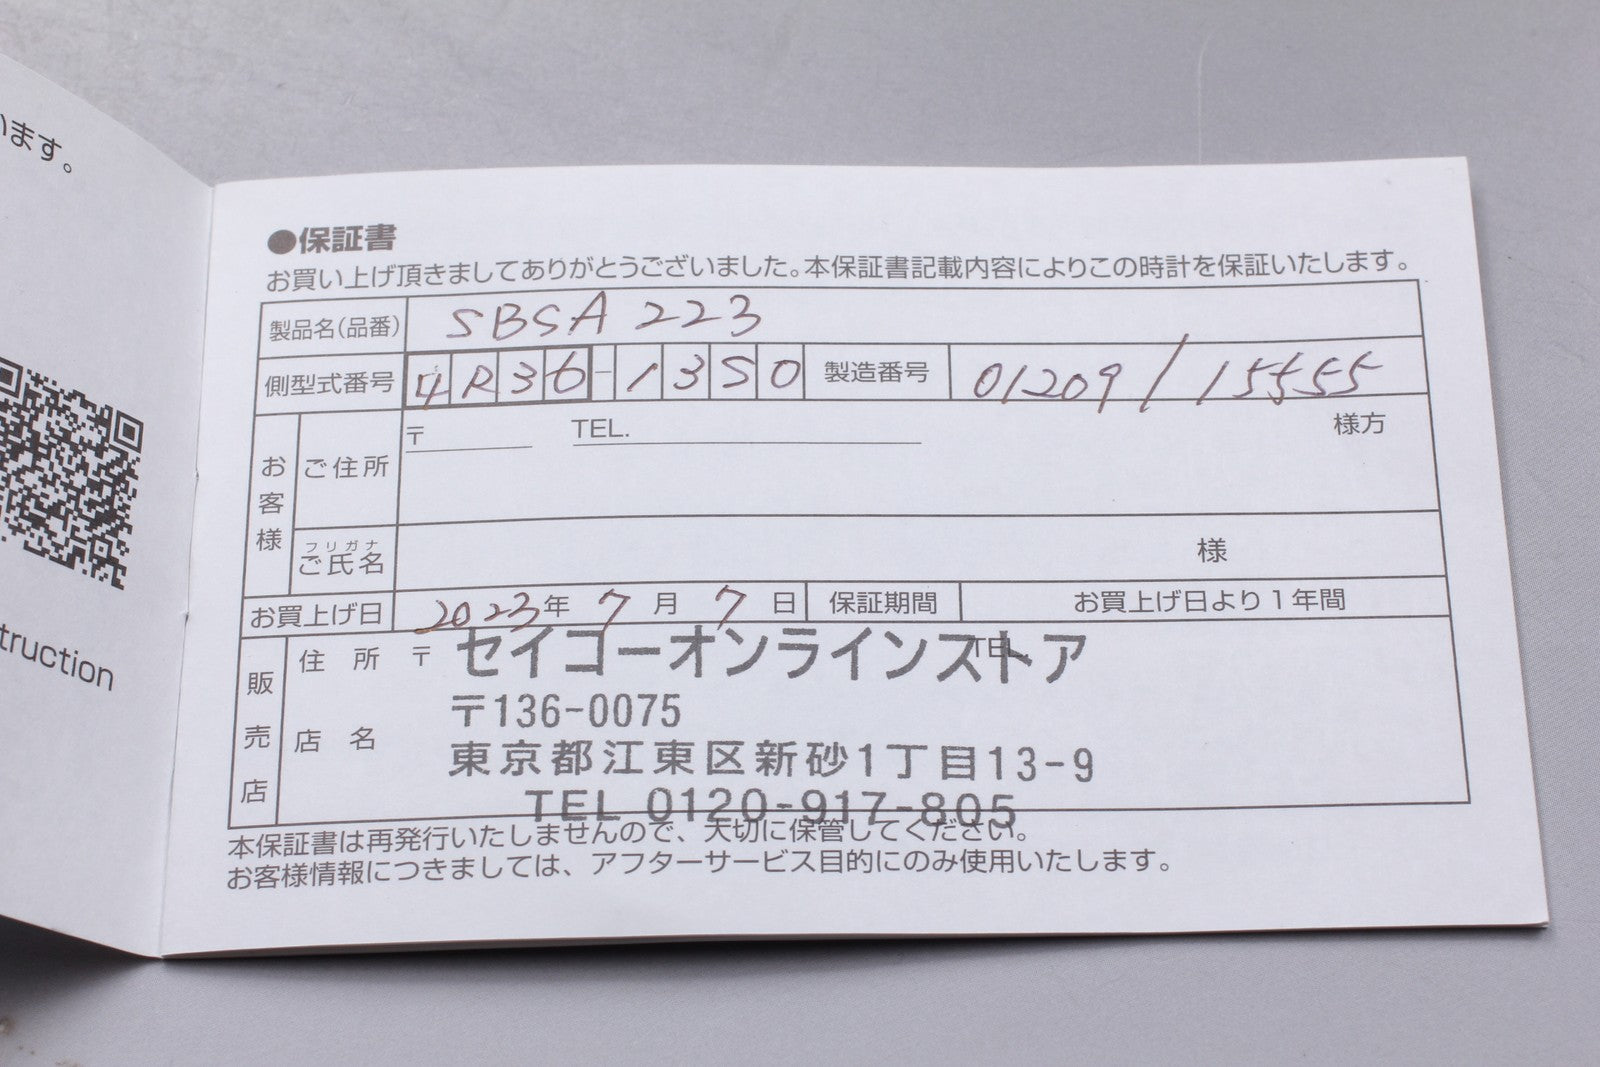 います。
truction
●保証書
お買い上げ頂きましてありがとうございました。本保証書記載内容によりこの時計を保証いたします。
製品名(品番) SBSA223
側型式番号 4R36-13S0 製造番号 01209/15555
お客様
ご住所 〒 TEL. 様方
フリガナ
ご氏名 様
お買上げ日 2023年 7月 7日 保証期間 お買上げ日より1年間
販売店
住所 〒 TEL.
店名
セイコーオンラインストア
〒136-0075
東京都江東区新砂1丁目13-9
TEL 0120-917-805
本保証書は再発行いたしませんので、大切に保管してください。
お客様情報につきましては、アフターサービス目的にのみ使用いたします。